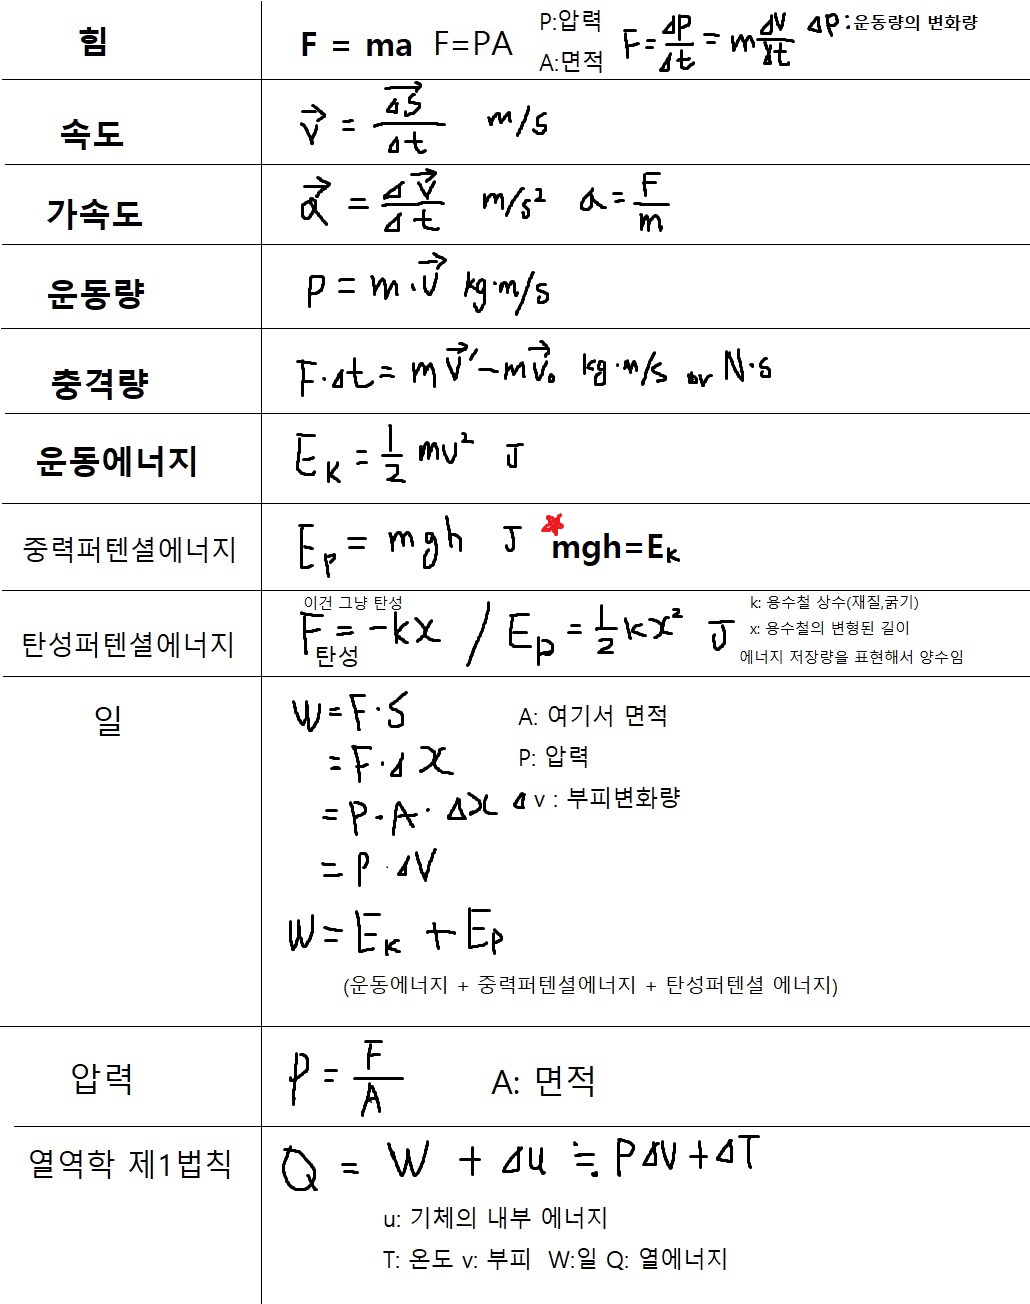 힘 F = ma F=PA P:압력 A:면적 F=Δp/Δt=mΔv/Δt Δp:운동량의 변화량
속도 v⃗ = Δs⃗/Δt m/s
가속도 a⃗ = Δv⃗/Δt m/s² a=F/m
운동량 p=m·v⃗ kg·m/s
충격량 F·Δt=mv⃗′-mv⃗₀ kg·m/s or N·s
운동에너지 Eₖ=1/2mv² J
중력퍼텐셜에너지 Eₚ=mgh J mgh=Eₖ
이건 그냥 탄성 k: 용수철 상수(재질,굵기)
탄성퍼텐셜에너지 F탄성=-kx / Eₚ=1/2kx² J x: 용수철의 변형된 길이
에너지 저장량을 표현해서 양수임
일 W=F·S A: 여기서 면적
=F·Δx P: 압력
=P·A·Δx Δv : 부피변화량
=P·ΔV
W=Eₖ+Eₚ
(운동에너지 + 중력퍼텐셜에너지 + 탄성퍼텐셜 에너지)
압력 P=F/A A: 면적
열역학 제1법칙 Q = W + Δu ≒ PΔV+ΔT
u: 기체의 내부 에너지
T: 온도 v: 부피 W:일 Q: 열에너지